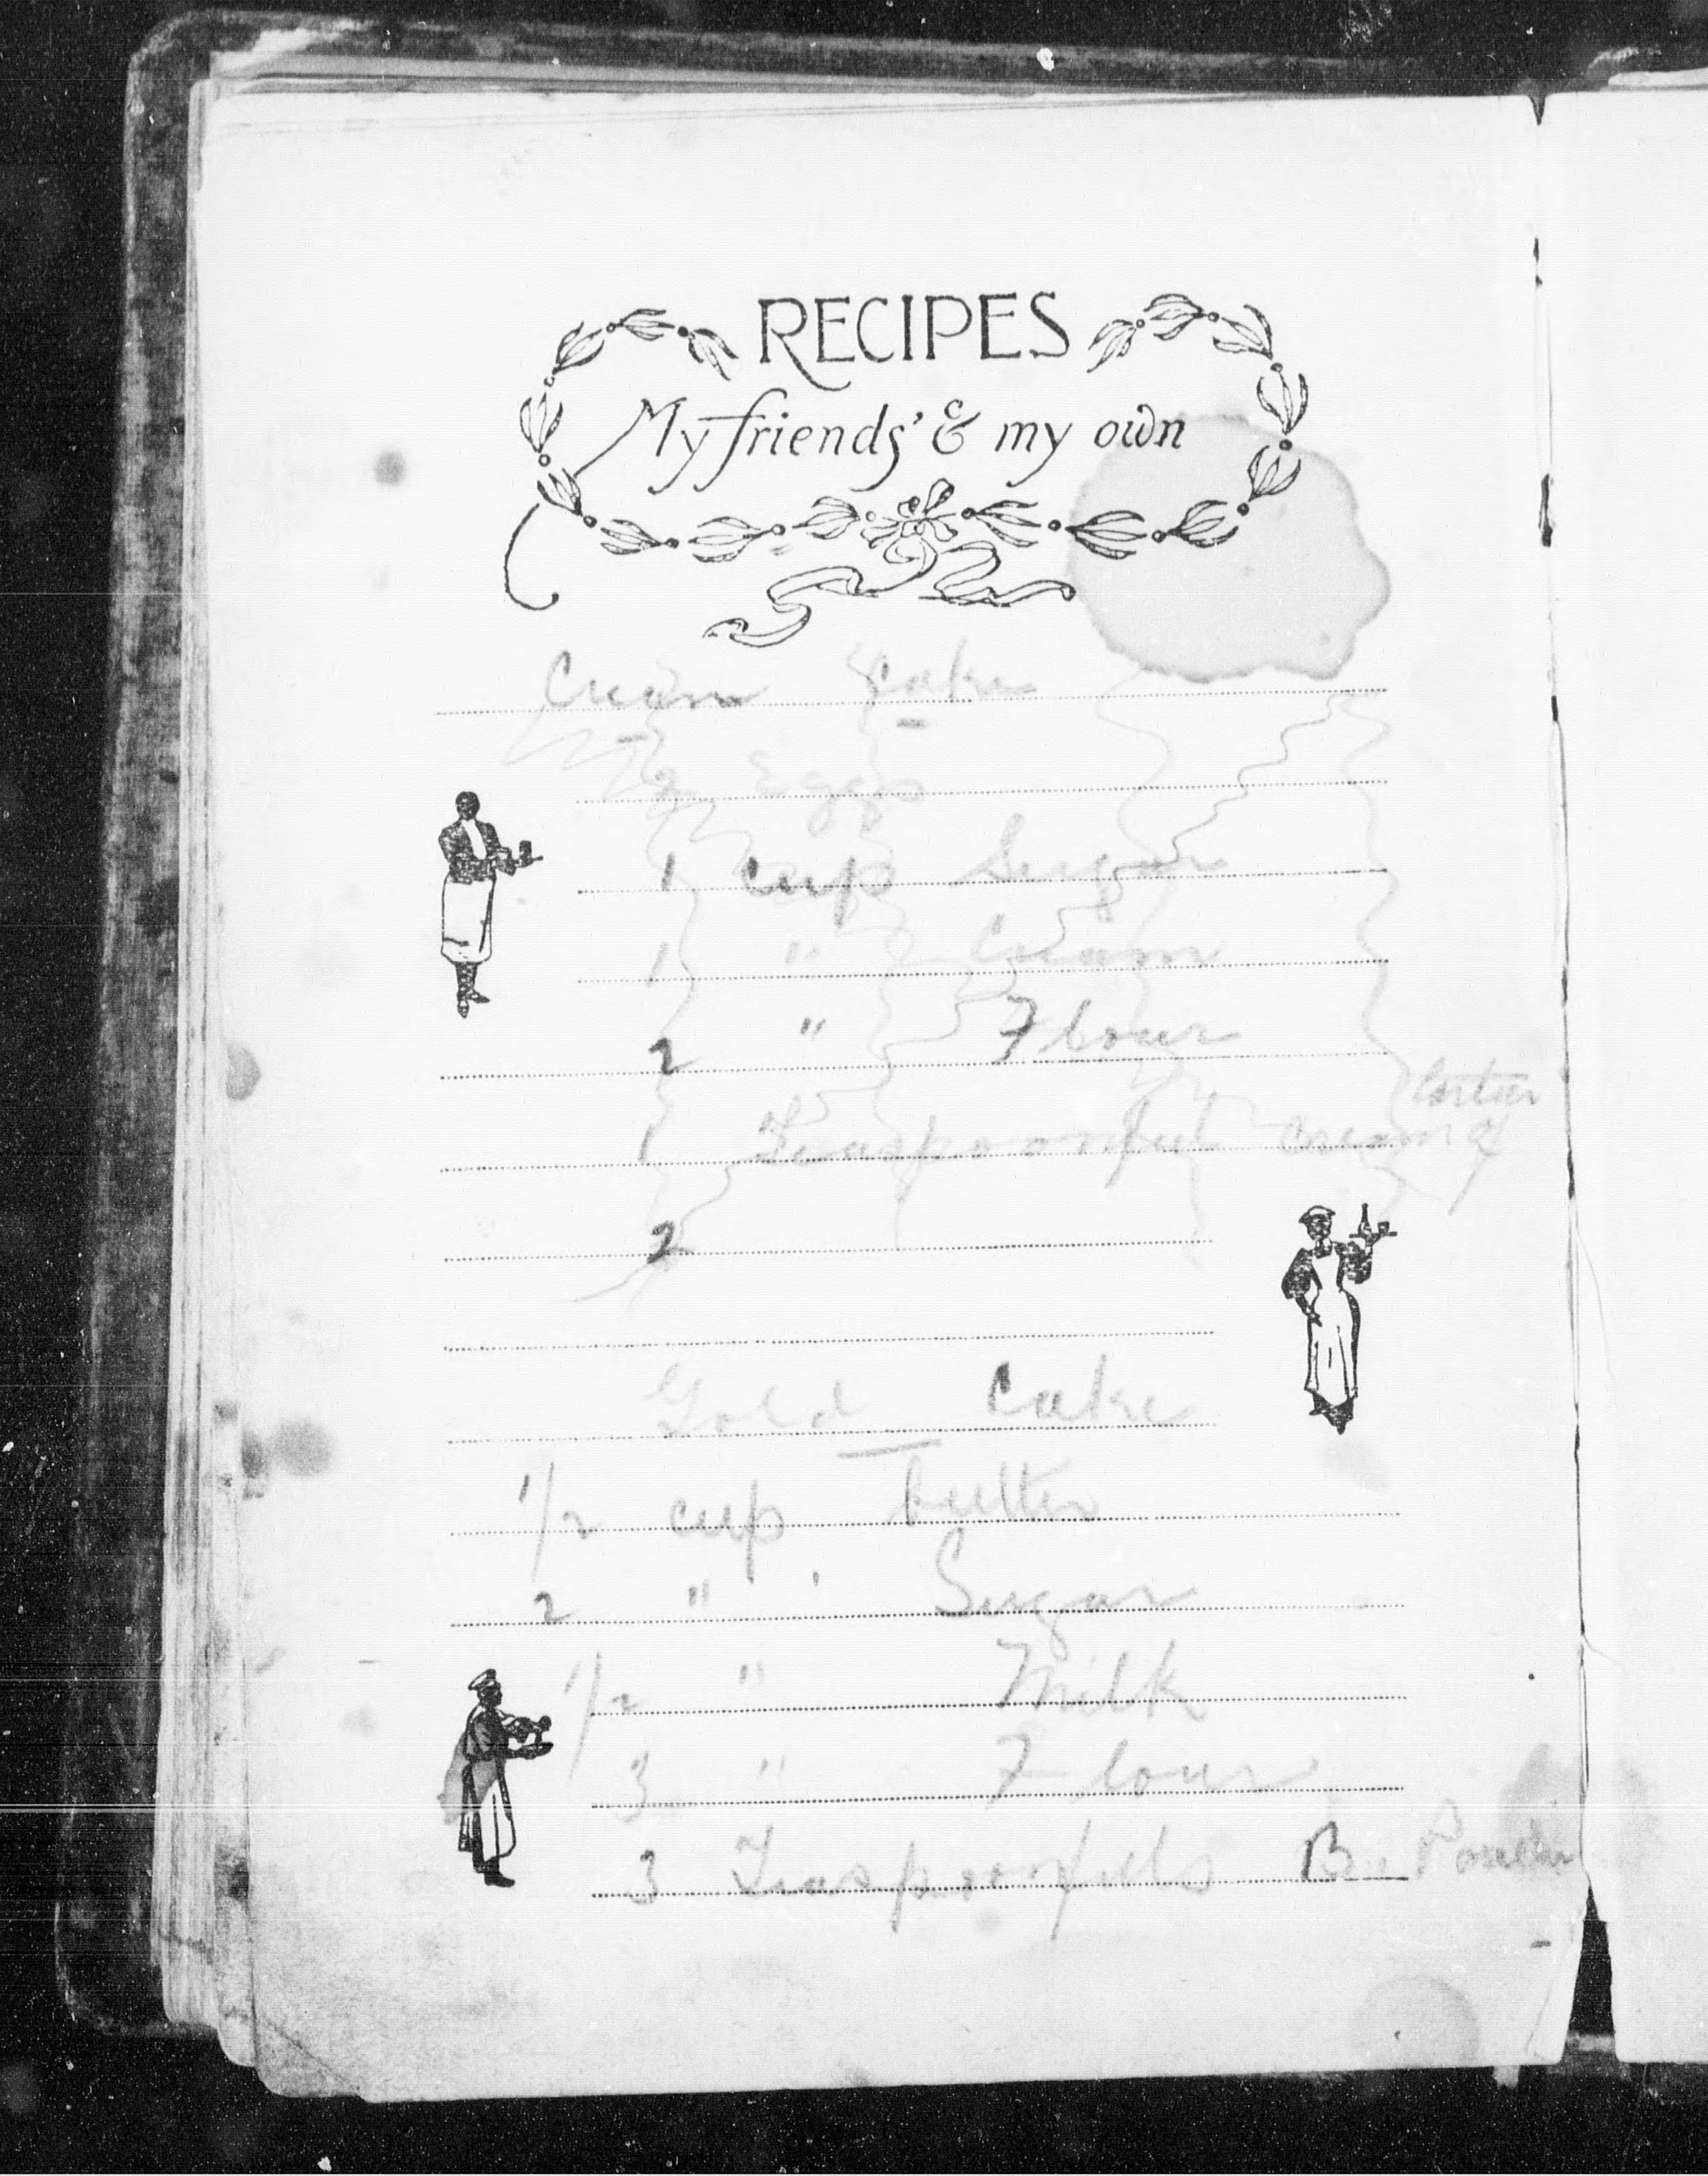 RECIPES
My friends' & my own
Cream Cake
2 Eggs
1 cup Sugar
1 " Cream
2 " Flour
1 Teaspoonful cream of
tarter
2
Gold Cake
1/2 cup butter
2 " Sugar
1/2 " Milk
3 " Flour
3 Teaspoonfuls B. Powder